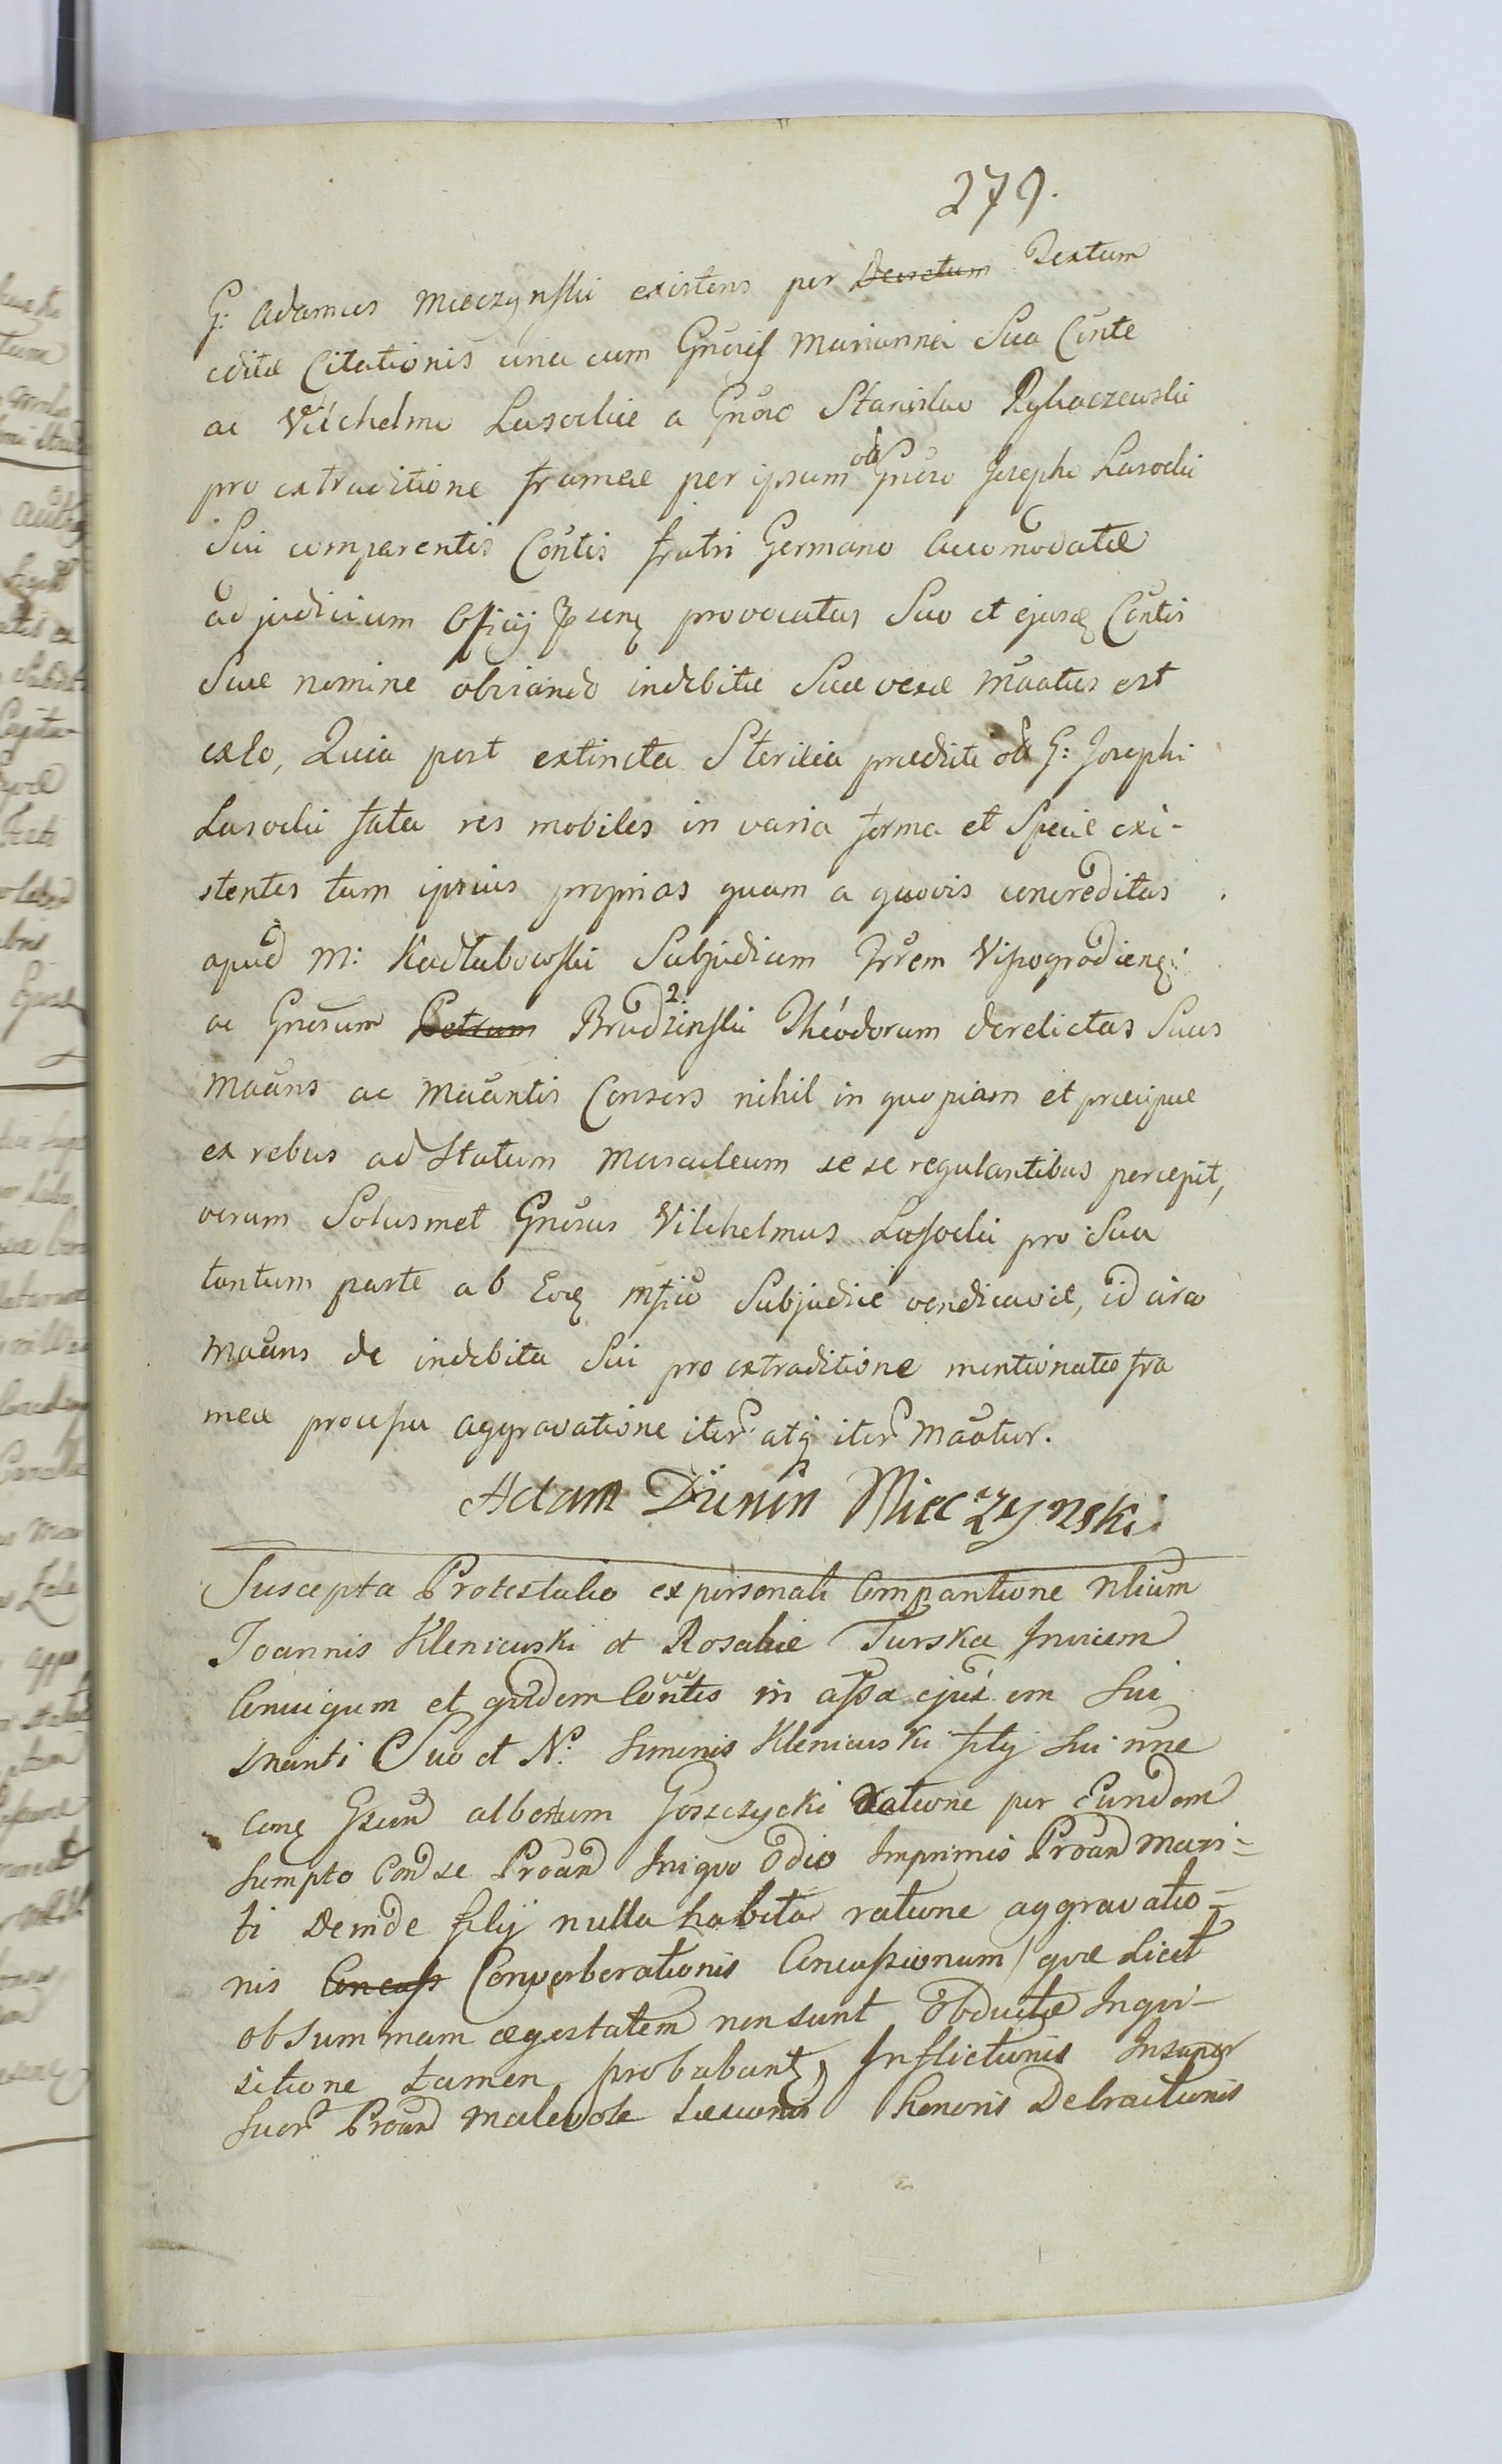 279.
G: Adamus Mieczynski existens per Decretum Textum
editæ Citationis una cum Gnosis Marianna Sua Cönte
ac Vilchelmo Lasockie a Gnöso Stanislao Rybaczewski
pro extraditione frameæ per ipsum ola Gnöso Josepho Lasocki
Sui comparentis Cöntis fratri Germano accomodatæ
ad judicium Officij provocatus Suo et ejusd Cöntis
Suæ nomine obviando indebitæ Suæ vexæ Möatus est
exlo, Quia post extincta Sterilia prædicti ola G: Josephi
Lasocki fata res mobiles in varia forma et Specie exi-
stentes tam ipsius proprias quam a quovis concreditas
apud M: Kadłubowski Subjudicem Trrem Vissogrodiens:
ac Gnosum Petrum Brudzinski 2. Théodorum derelictas Suus
Möans ac Möantis Consors nihil in quopiam et præcipue
ex rebus ad Statum Masculeum sese regulantibus percepit,
verum Solusmet Gnosus Vilchelmus Lassocki pro Sua
tantum parte ab Eod mfico Subjudice vendicavit, id circo
Möans de indebita Sui pro extraditione mentionatæ fra
meæ processu aggravatione iter atq iter Möatur.
Adam Dunin Mieczynski
Suscepta Protestatio ex personali Comparitione Nlium
Joannis Kleniewski et Rosaliæ Turska Invicem
Conjugum et quidem Cöntis in assa ejus em Sui
Mariti Suo et N: Simonis Kleniewski filij Sui nne
Cong Gsum albertum Goszczycki Ratione per Eundem
Sumpto Con se Proan Iniquo Odio Imprimis Proan Mari-
ti Deinde filij nulla habita ratione aggravatio-
nis Concuss Converberationis Concussionum / quæ Licet
ob Summam ægestatem non sunt Obductæ Inqui-
sitione tamen probabunt / Inflictionis Insuper
Suor Proan Malevole Læsionis honoris Detractionis